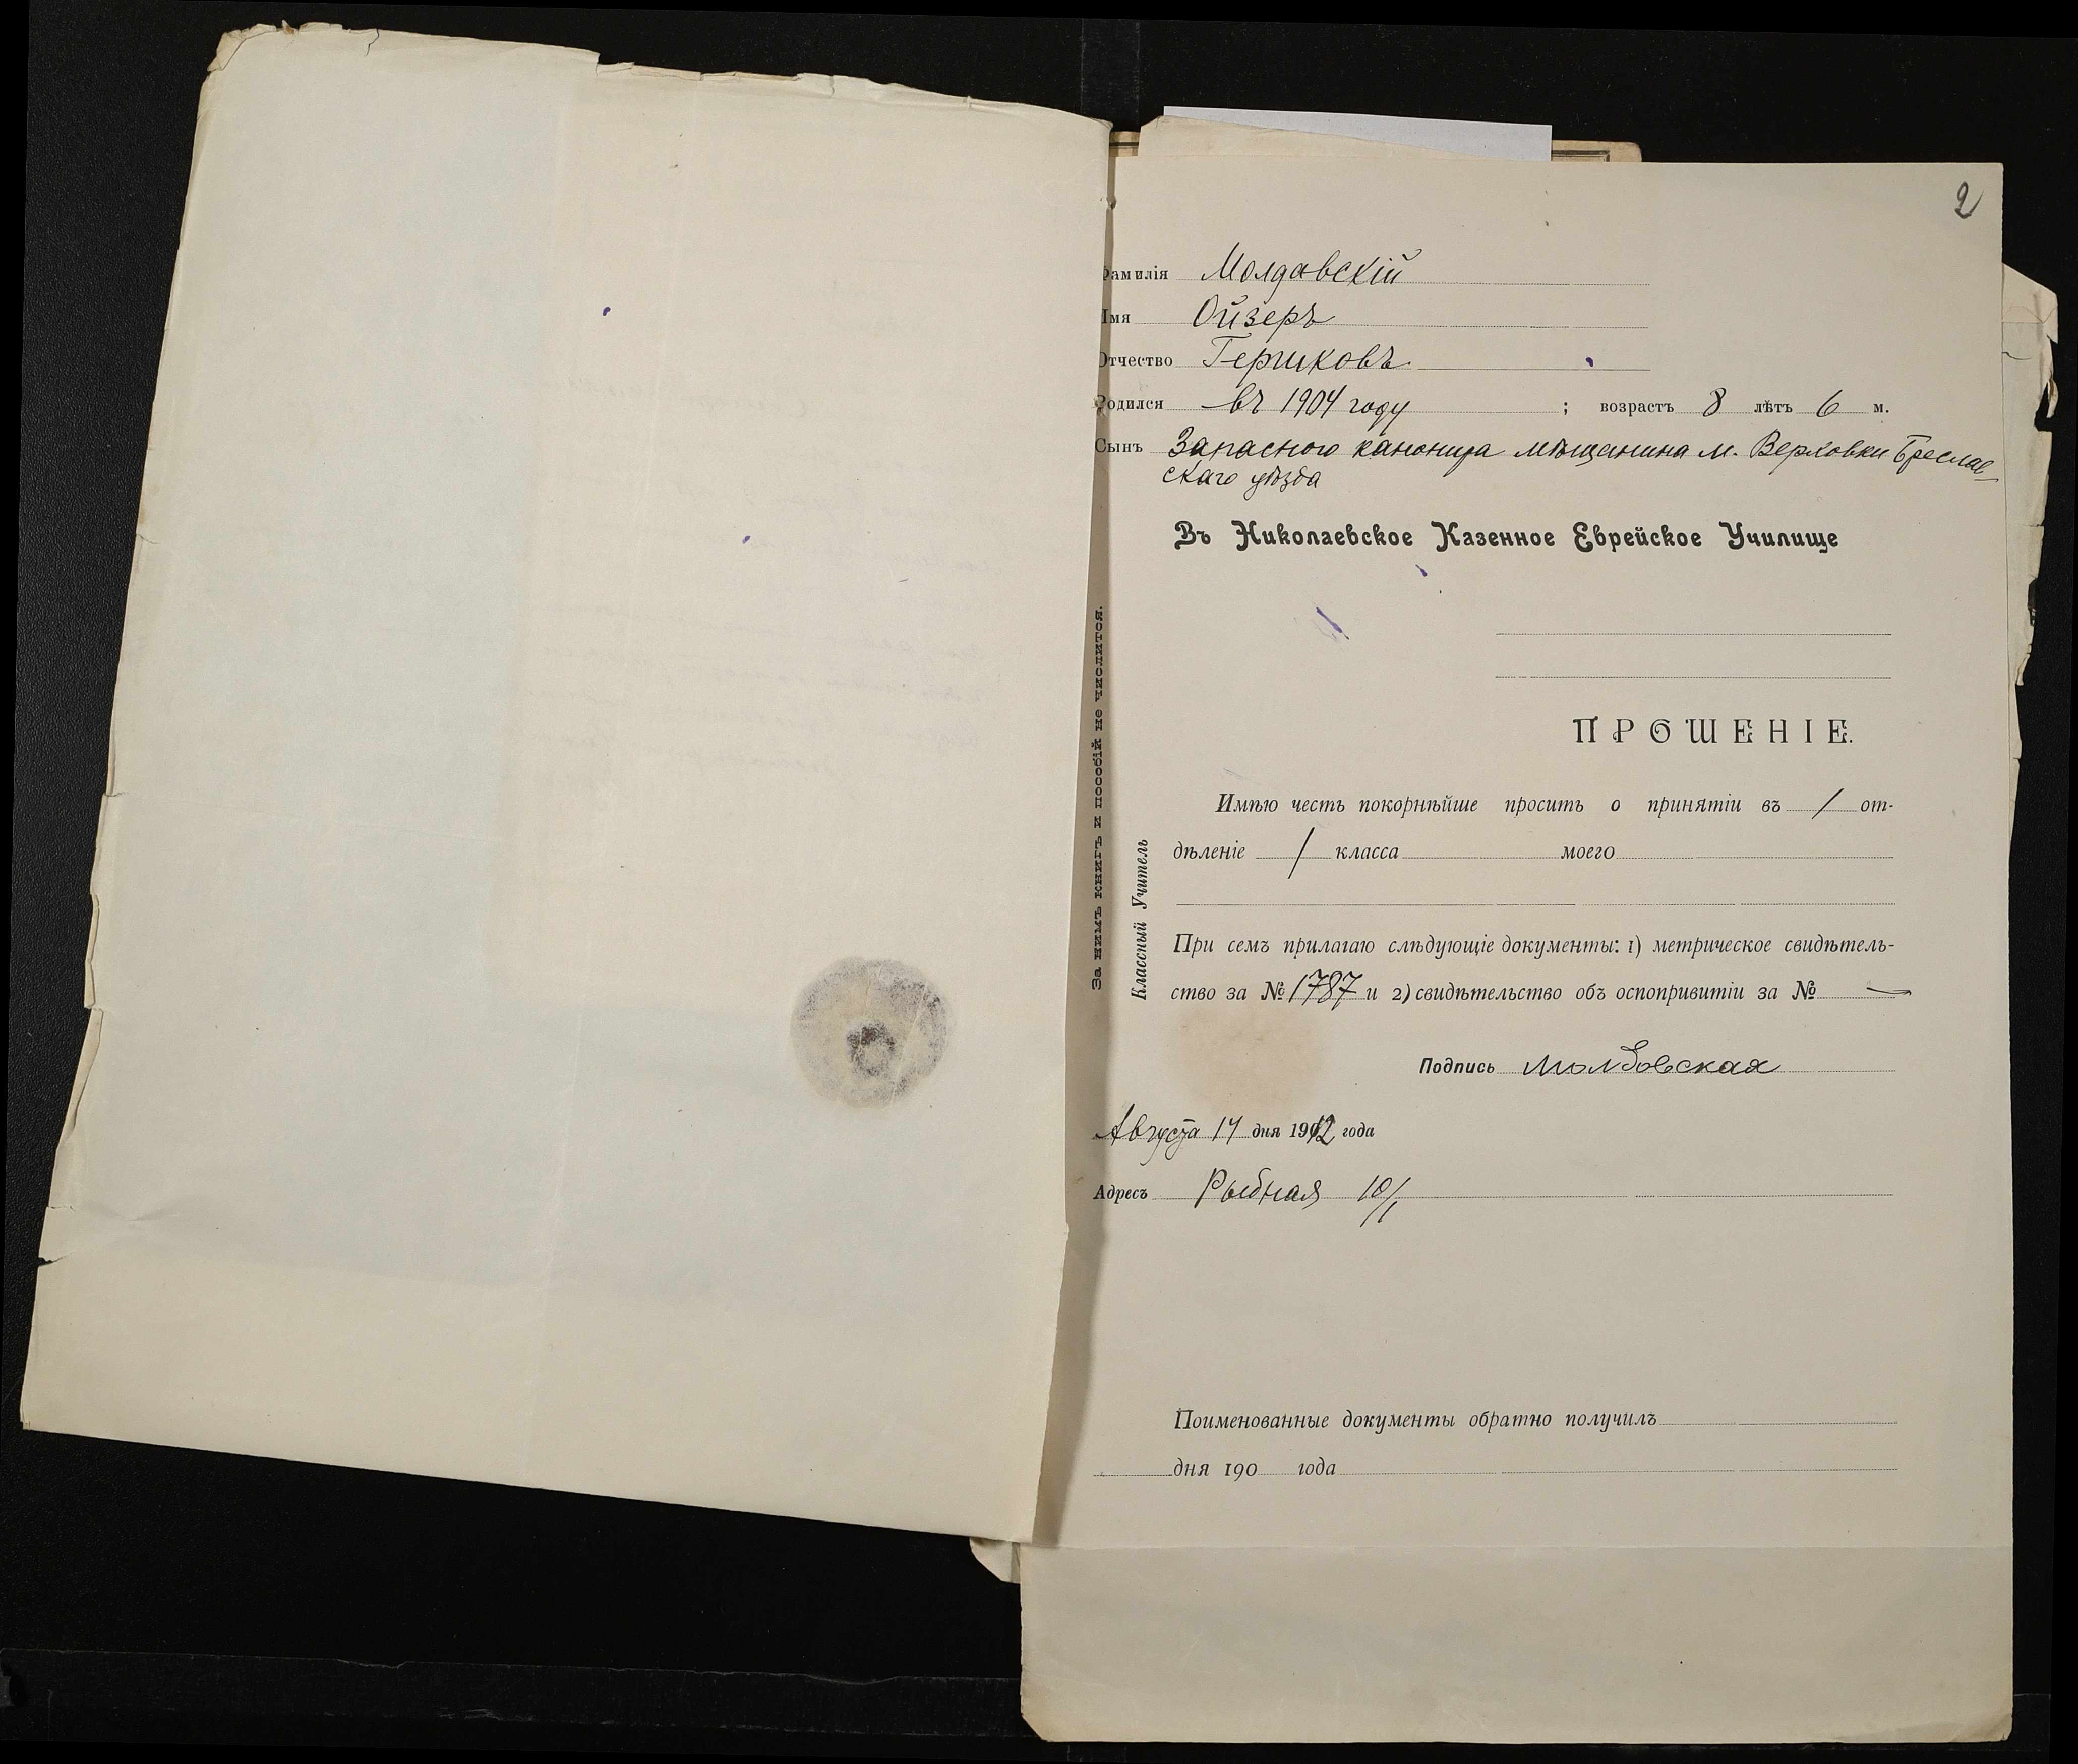 2
Фамилія Молдавскій
Имя Ойзеръ
Отчество Гершковъ
Родился въ 1904 году ; возрастъ 8 лѣтъ 6 м.
Сынъ Запасного канонира мѣщанина м. Верховки Бреслав-
скаго уѣзда
Въ Николаевское Казенное Еврейское Училище
ПРОШЕНІЕ.
Имѣю честь покорнѣйше просить о принятіи въ 1 от-
дѣленіе 1 класса моего
При семъ прилагаю слѣдующіе документы: 1) метрическое свидѣтель-
ство за № 1787 и 2) свидѣтельство объ оспопривитіи за № —
Подпись Молдовская
Августа 14 дня 1912 года
Адресъ Рыбная 10/1
Поименованные документы обратно получилъ
дня 190 года
За нимъ книгъ и пособій не числится.
Классный Учитель